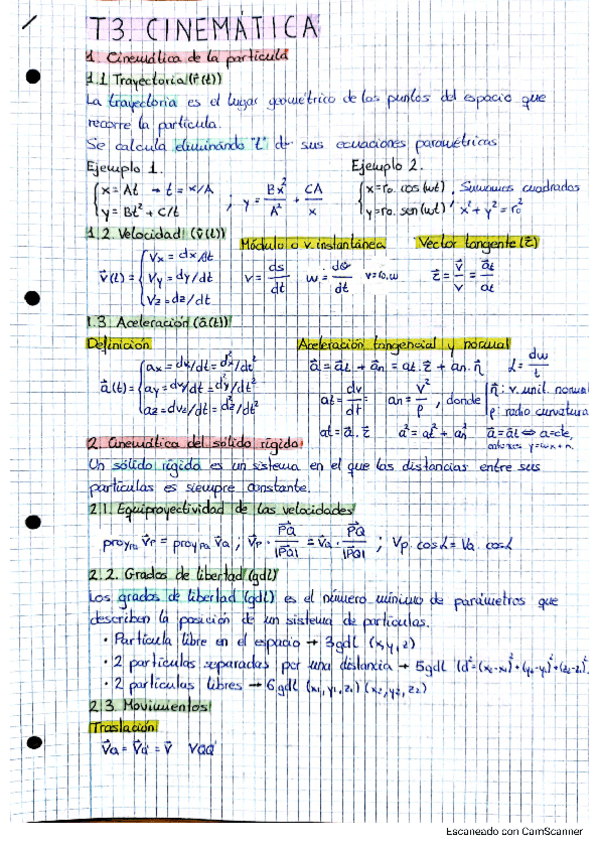 T3. CINEMÁTICA
1. Cinemática de la partícula
1.1 Trayectoria (r⃗(t))
La trayectoria es el lugar geométrico de los puntos del espacio que
recorre la partícula.
Se calcula eliminando "t" de sus ecuaciones paramétricas
Ejemplo 1. Ejemplo 2.
{x = At → t = x/A ; y = Bx²/A² + CA/x {x = r₀. cos(ωt) , Sumamos cuadrados
{y = Bt² + C/t {y = r₀. sen(ωt) x² + y² = r₀²
1.2. Velocidad (v⃗(t)) Módulo o v. instantánea Vector tangente (τ⃗)
v⃗(t) = {Vx = dx/dt
Vy = dy/dt v = ds/dt w = dθ/dt v = r₀.w τ⃗ = v⃗/v = a⃗t/at
Vz = dz/dt
1.3. Aceleración (a⃗(t))
Definición Aceleración tangencial y normal
a⃗(t) = {ax = dv/dt = d²x/dt² a⃗ = a⃗t + a⃗n = at.τ⃗ + an.η⃗ α = dw/t
ay = dv/dt = d²y/dt² at = dv/dt an = v²/ρ , donde {η⃗: v. unit. normal
az = dvz/dt = d²z/dt² ρ: radio curvatura
at = a⃗.τ⃗ a² = at² + an² a⃗ = a⃗t ⇔ a = cte,
2. Cinemática del sólido rígido
Un sólido rígido es un sistema en el que las distancias entre sus
partículas es siempre constante.
2.1. Equiproyectividad de las velocidades
proy PQ v⃗P = proy PQ v⃗Q ; v⃗P · PQ⃗/|PQ⃗| = v⃗Q · PQ⃗/|PQ⃗| ; Vp. cosα = VQ. cosα
2.2. Grados de libertad (gdl)
Los grados de libertad (gdl) es el número mínimo de parámetros que
describen la posición de un sistema de partículas.
· Partícula libre en el espacio → 3gdl (x,y,z)
· 2 partículas separadas por una distancia → 5gdl (d² = (x₂-x₁)² + (y₂-y₁)² + (z₂-z₁)²
· 2 partículas libres → 6gdl (x₁,y₁,z₁) (x₂,y₂,z₂)
2.3. Movimientos
Traslación
V⃗a = V⃗a' = V⃗ ∀aa'
Escaneado con CamScanner